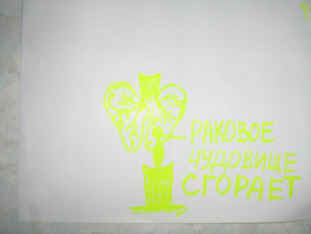 РАКОВОЕ
ЧУДОВИЩЕ
СГОРАЕТ